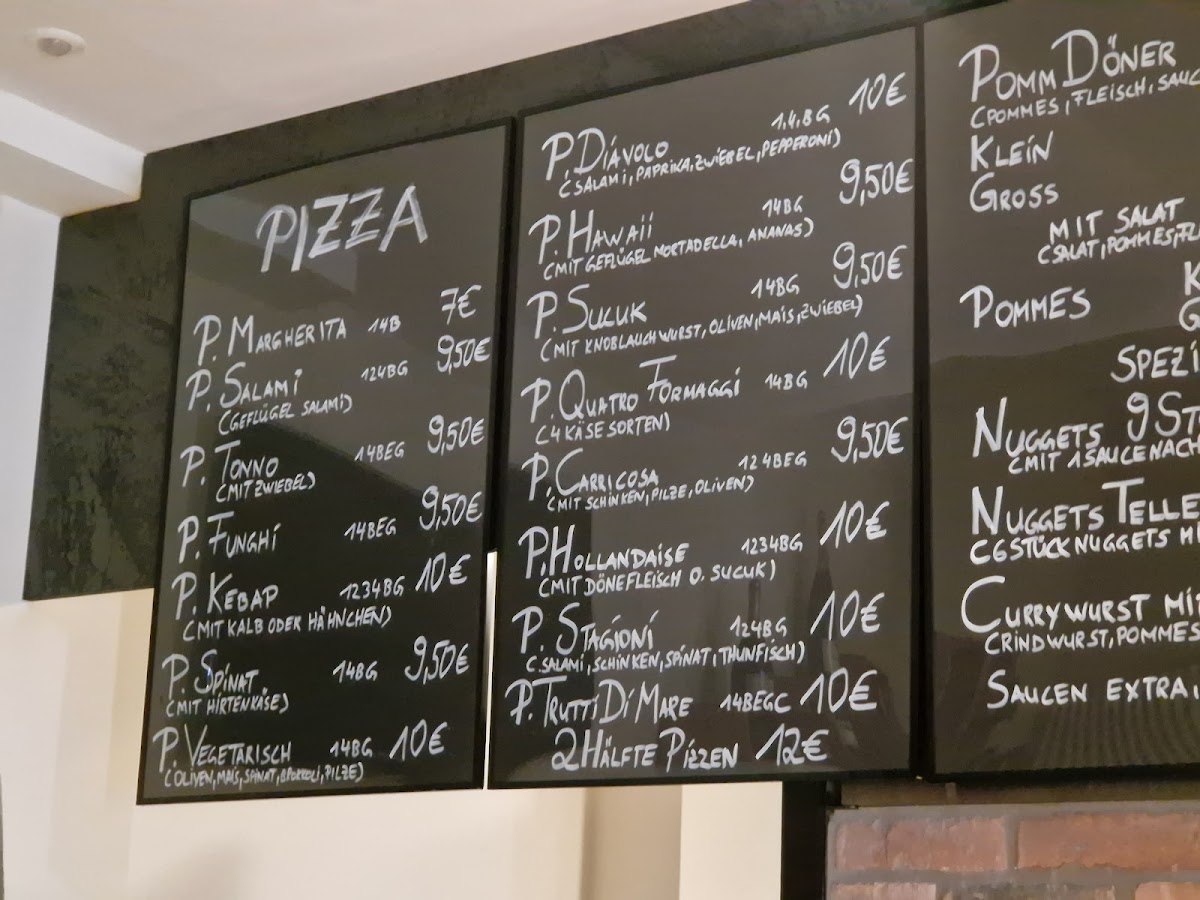 PIZZA
P. MARGHERITA 14B 7€
P. SALAMI 124BG 9,50€
(GEFLÜGEL SALAMI)
P. TONNO 14BEG 9,50€
(MIT ZWIEBEL)
P. FUNGHI 14BEG 9,50€
P. KEBAP 1234BG 10€
(MIT KALB ODER HÄHNCHEN)
P. SPINAT 14BG 9,50€
(MIT HIRTENKÄSE)
P. VEGETARISCH 14BG 10€
(OLIVEN, MAIS, SPINAT, BROKKOLI, PILZE)
P. DIAVOLO 1,4,BG 10€
(SALAMI, PAPRIKA, ZWIEBEL, PEPPERONI)
P. HAWAII 14BG 9,50€
(MIT GEFLÜGEL MORTADELLA, ANANAS)
P. SUCUK 14BG 9,50€
(MIT KNOBLAUCHWURST, OLIVEN, MAIS, ZWIEBEL)
P. QUATRO FORMAGGI 14BG 10€
(4 KÄSE SORTEN)
P. CARRICOSA 124BEG 9,50€
(MIT SCHINKEN, PILZE, OLIVEN)
P. HOLLANDAISE 1234BG 10€
(MIT DÖNEFLEISCH O. SUCUK)
P. STAGIONI 124BG 10€
(SALAMI, SCHINKEN, SPINAT, THUNFISCH)
P. TRUTTI DI MARE 14BEGC 10€
2 HÄLFTE PIZZEN 12€
POMM DÖNER
(POMMES, FLEISCH, SAUC
KLEIN
GROSS
MIT SALAT
(SALAT, POMMES, FL
POMMES K
G
SPEZI
NUGGETS 9 ST
(MIT 1 SAUCE NACH
NUGGETS TELLE
(6 STÜCK NUGGETS MI
CURRYWURST MIT
(RINDWURST, POMMES
SAUCEN EXTRA